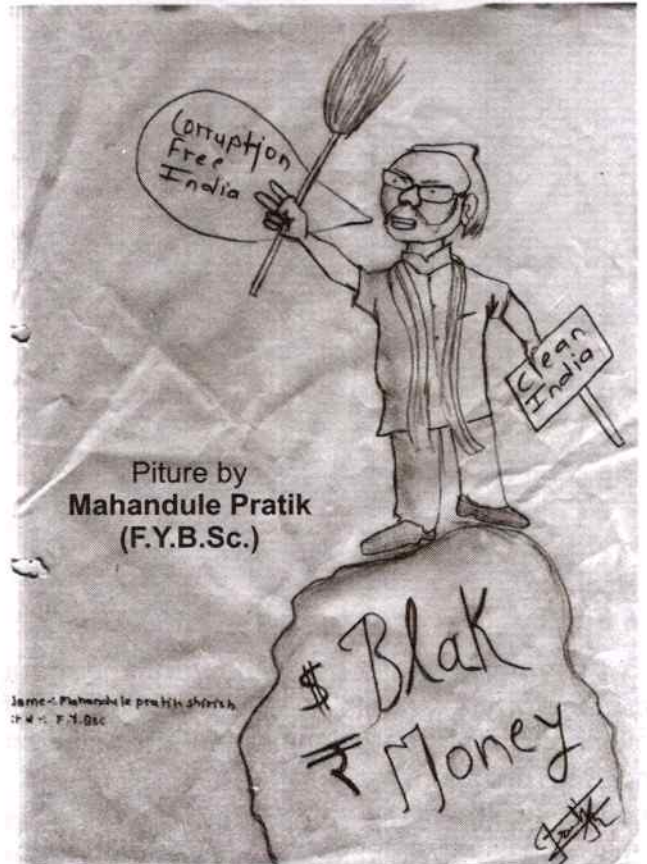 Corruption
Free
India
Clean
India
Piture by
Mahandule Pratik
(F.Y.B.Sc.)
Name-: Mahandule pratik shirish
F.Y.BSc
$ Blak
₹ Money